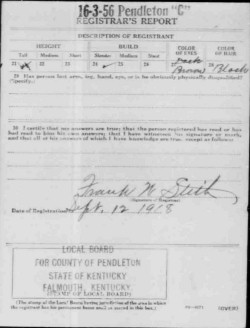 16-3-56 Pendleton "C"
REGISTRAR'S REPORT
DESCRIPTION OF REGISTRANT
HEIGHT BUILD COLOR OF EYES COLOR OF HAIR
Tall Medium Short Slender Medium Stout
21 22 23 24 25 26 27 Dark Brown 28 Black
29 Has person lost arm, leg, hand, eye, or is he obviously physically disqualified?
(Specify.)
30 I certify that my answers are true; that the person registered has read or has
had read to him his own answers; that I have witnessed his signature or mark,
and that all of his answers of which I have knowledge are true, except as follows:
Frank N Stith
Date of Registration Sept. 12 1918
LOCAL BOARD
FOR COUNTY OF PENDLETON
STATE OF KENTUCKY
FALMOUTH, KENTUCKY
(STAMP OF LOCAL BOARD)
(The stamp of the Local Board having jurisdiction of the area in which
the registrant has his permanent home shall be placed in this box.)
(OVER)